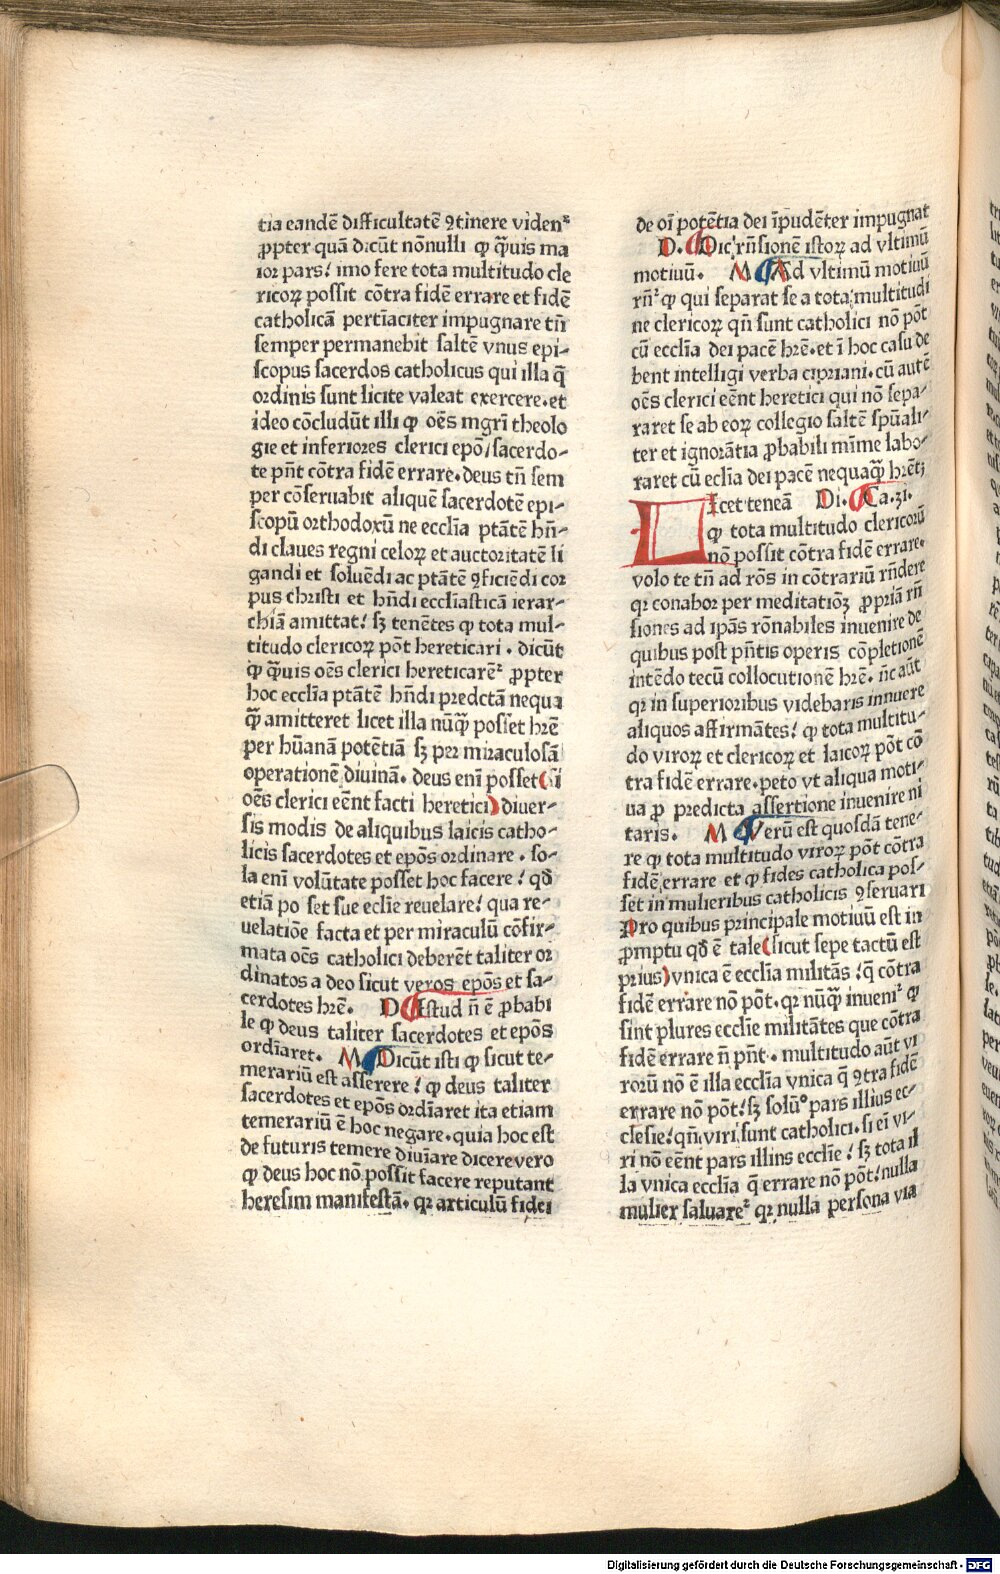 tia eandē difficultatē ꝯtinere videnᷣ
ꝓpter quā dicūt nōnulli ꝙ q̄uis ma
ior pars/ imo fere tota multitudo cle
ricoꝝ possit cōtra fidē errare et fidē
catholicā pertīaciter impugnare tn̄
semper permanebit saltē vnus epi-
scopus sacerdos catholicus qui illa q̄
ordinis sunt licite valeat exercere.et
ideo cōcludūt illi ꝙ oēs mgr̄i theolo
gie et inferiores clerici epō/sacerdo-
te pn̄t cōtra fidē errare.deus tn̄ sem
per cōseruabit aliquē sacerdotē epi-
scopū orthodoxū ne eccl̄ia ptātē hn̄-
di claues regni celoꝝ et auctoritatē li
gandi et soluēdi ac ptātē ꝯficiēdi cor
pus christi et hn̄di eccl̄iasticā ierar-
chiā amittat/ sꝫ tenētes ꝙ tota mul-
titudo clericoꝝ pōt hereticari . dicūt
ꝙ q̄uis oēs clerici hereticarēᷣ ꝓpter
hoc eccl̄ia ptātē hn̄di predctā nequa
q̄ amitteret licet illa nūq̄ posset hr̄e
per hūanā potētiā sꝫ per miraculosā
operationē diuinā. deus enī posset (si
oēs clerici eēnt facti heretici) diuer-
sis modis de aliquibus laicis catho-
licis sacerdotes et epōs ordinare . so-
la enī volūtate posset hoc facere/ qđ
etiā po set sue eclīe reuelare/ qua re-
uelatiōe facta et per miraculū cōfir-
mata oēs catholici deberēt taliter or
dinatos a deo sicut veros epōs et sa-
cerdotes hr̄e. D Istud n̄ ē ꝓbabi
le ꝙ deus taliter sacerdotes et epōs
ordīaret. M Dicūt isti ꝙ sicut te-
merariū est asserere/ ꝙ deus taliter
sacerdotes et epōs ordīaret ita etiam
temerariū ē hoc negare.quia hoc est
de futuris temere diuīare dicere vero
ꝙ deus hoc nō possit facere reputant
heresim manifestā. qꝛ articulū fidei
de oī potētia dei īpudēter impugnat
D. Dic rn̄sionē istoꝝ ad vltimū
motiuū. M Ad vltimū motiuū
rn̄ᷣ ꝙ qui separat se a tota multitudi
ne clericoꝝ qn̄ sunt catholici nō pōt
cū eccl̄ia dei pacē hr̄e.et ī hoc casu de
bent intelligi verba cipriani.cū autē
oēs clerici eēnt heretici qui nō sepa-
raret se ab eoꝝ collegio saltē sp̄uali-
ter et ignorātia ꝓbabili mīme labo-
raret cū ecl̄ia dei pacē nequaq̄ hr̄etꝫ
LIcet teneā Di. Ca.31.
ꝙ tota multitudo clericorū
nō possit cōtra fidē errare.
volo te tn̄ ad rōs in cōtrariū rn̄dere
qꝛ conabor per meditatiōꝫ ꝓpriā rn̄
siones ad ipās rōnabiles inuenire de
quibus post pn̄tis operis cōpletionē
intēdo tecū collocutionē hr̄e. n̄c aūt
qꝛ in superioribus videbaris innuere
aliquos affirmātes/ ꝙ tota multitu-
do viroꝝ et clericoꝝ et laicoꝝ pōt cō
tra fidē errare.peto vt aliqua moti-
ua ꝓ predicta assertione inuenire ni
taris. M Verū est quosdā tene-
re ꝙ tota multitudo viroꝝ pōt cōtra
fidē errare et ꝙ fides catholica pos-
set in mulieribus catholicis ꝯseruari
Pro quibus principale motiuū est in
ꝓmptu qđ ē tale (sicut sepe tactū est
prius) vnica ē eccl̄ia militās/ q̄ cōtra
fidē errare nō pōt. qꝛ nūq̄ inueniᷣ ꝙ
sint plures eccl̄ie militātes que cōtra
fidē errare n̄ pn̄t. multitudo aūt vi
rorū nō ē illa eccl̄ia vnica q̄ ꝯtra fidē
errare nō pōt/ sꝫ solū° pars illius ec-
clesie/ qn̄ viri sunt catholici.si ei vi-
ri nō eēnt pars illins eccl̄ie/ sꝫ tota il
la vnica eccl̄ia q̄ errare nō pōt/ nulla
mulier saluareᷣ qꝛ nulla persona via
Digitalisierung gefördert durch die Deutsche Forschungsgemeinschaft - DFG